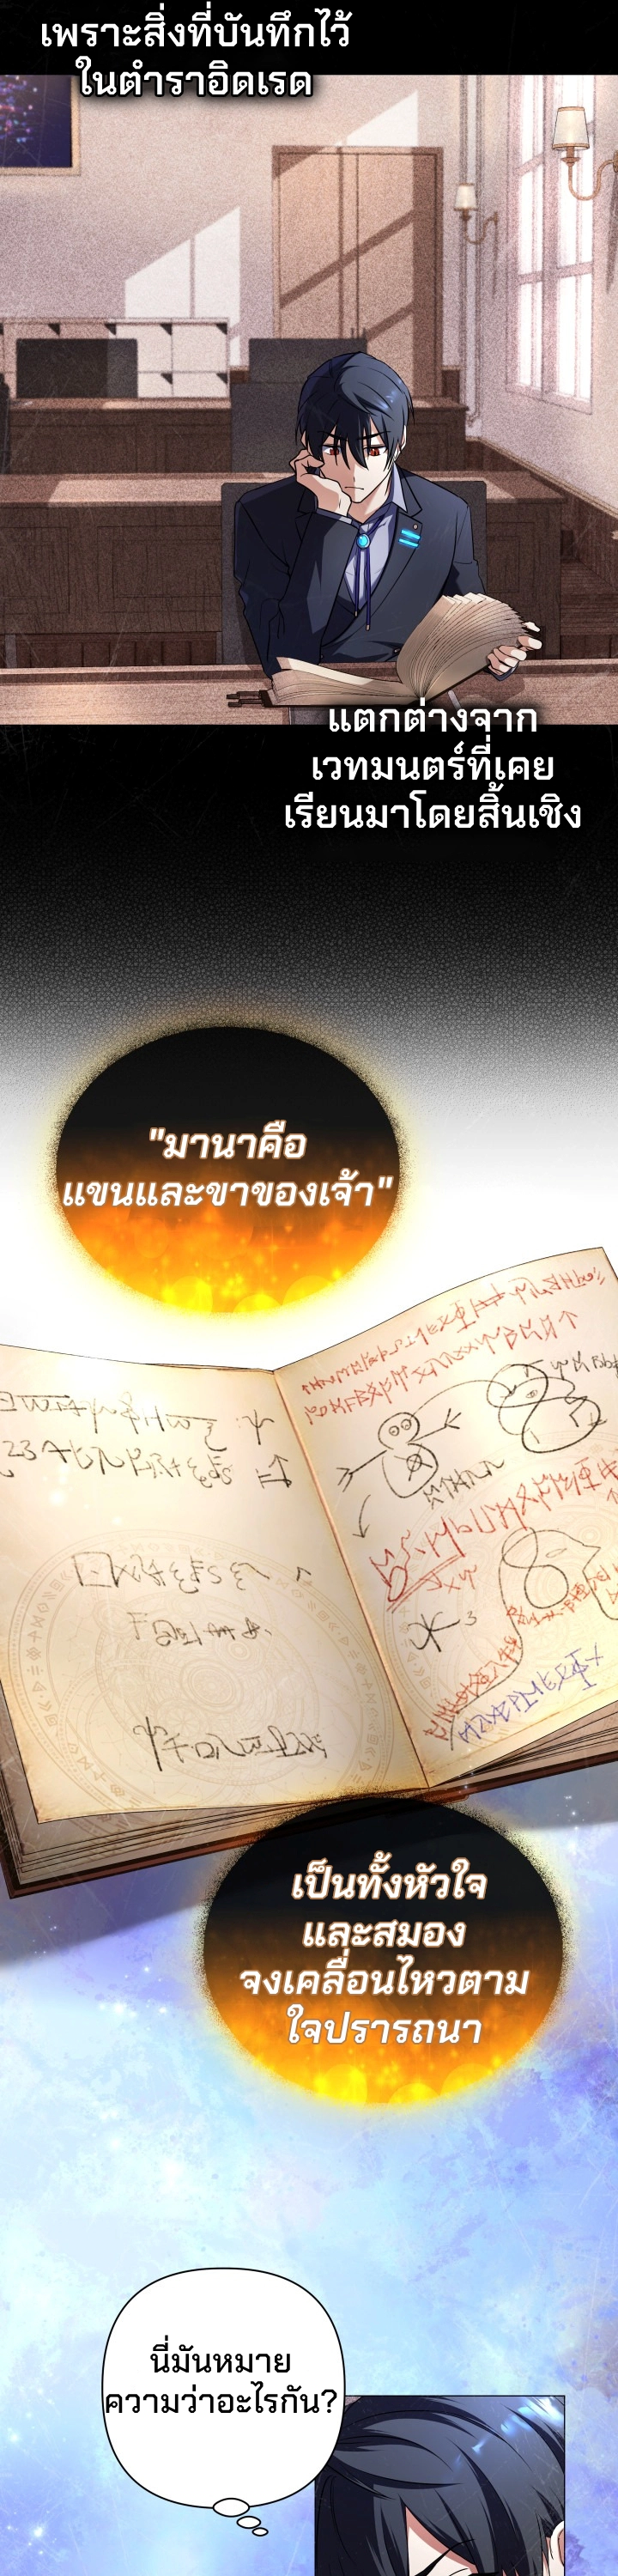 เพราะสิ่งที่บันทึกไว้
ในตำราอิดเรด
แตกต่างจาก
เวทมนตร์ที่เคย
เรียนมาโดยสิ้นเชิง
"มานาคือ
แขนและขาของเจ้า"
เป็นทั้งหัวใจ
และสมอง
จงเคลื่อนไหวตาม
ใจปรารถนา
นี่มันหมาย
ความว่าอะไรกัน?